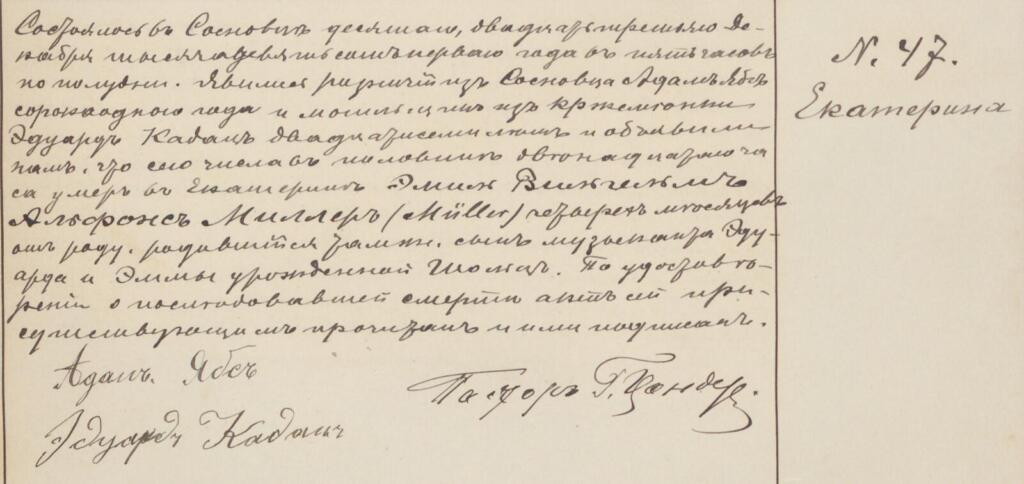 Состоялось въ Сосновицѣ десятаго, двадцать третьяго Де-
кабря тысяча девятьсотъ перваго года въ пять часовъ
по полудни. Явились рѣзчикъ изъ Сосновца Адамъ Ябсъ
сорока одного года и могильщикъ изъ
Эдуардъ Кабанъ двадцати семи лѣтъ и объявили
намъ, что сего числа въ половинѣ двѣнадцатаго ча
са умеръ въ Екатеринѣ Эмилъ Вильгельмъ
Альфонсъ Миллеръ (Müller) четырехъ мѣсяцевъ
отъ роду, родившійся тамже, сынъ музыканта Эду-
арда и Эммы урожденной Шольцъ. По удостовѣ-
реніи о послѣдовавшей смерти актъ сей при-
сутствующимъ прочитанъ и ими подписанъ.
Адамъ Ябсъ
Эдуардъ Кабанъ
Пасторъ Г. Цандеръ.
N. 47.
Екатерина